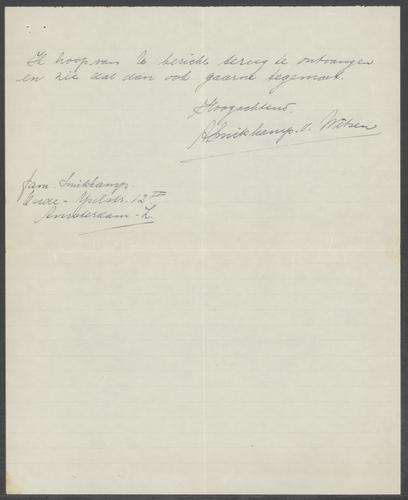 Ik hoop van U bericht terug te ontvangen
en zie dat dan ook gaarne tegemoet.
Hoogachtend.
Smikkamp. v. Witsen
Fam. Smikkamp.
Oude-Yselstr. 12 III
Amsterdam-Z.